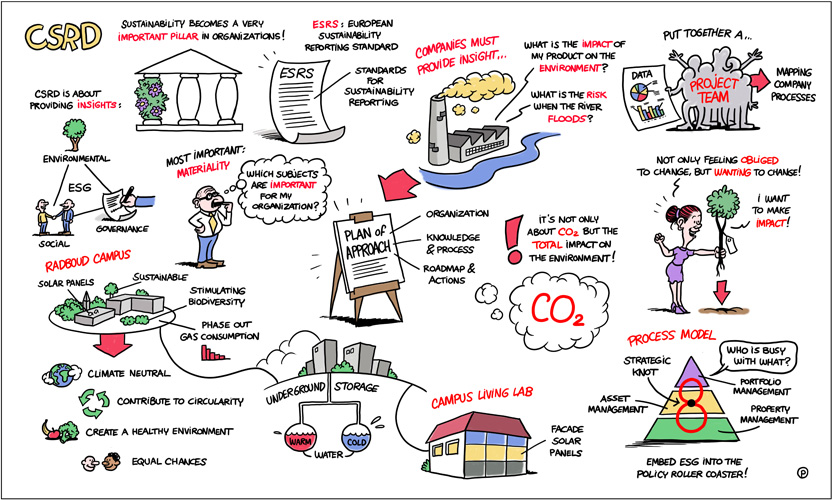 CSRD
SUSTAINABILITY BECOMES A VERY
IMPORTANT PILLAR IN ORGANIZATIONS!
ESRS: EUROPEAN
SUSTAINABILITY
REPORTING STANDARD
ESRS
STANDARDS
FOR
SUSTAINABILITY
REPORTING
COMPANIES MUST
PROVIDE INSIGHT...
WHAT IS THE IMPACT OF
MY PRODUCT ON THE
ENVIRONMENT?
WHAT IS THE RISK
WHEN THE RIVER
FLOODS?
PUT TOGETHER A...
DATA
PROJECT
TEAM
MAPPING
COMPANY
PROCESSES
CSRD IS ABOUT
PROVIDING INSIGHTS:
ENVIRONMENTAL
ESG
SOCIAL
GOVERNANCE
MOST IMPORTANT:
MATERIALITY
WHICH SUBJECTS
ARE IMPORTANT
FOR MY
ORGANIZATION?
PLAN of
APPROACH
ORGANIZATION
KNOWLEDGE &
PROCESS
ROADMAP &
ACTIONS
IT'S NOT ONLY
ABOUT CO2 BUT THE
TOTAL IMPACT ON
THE ENVIRONMENT!
CO2
NOT ONLY FEELING OBLIGED
TO CHANGE, BUT WANTING TO CHANGE!
I WANT
TO MAKE
IMPACT!
RADBOUD CAMPUS
SOLAR PANELS
SUSTAINABLE
STIMULATING
BIODIVERSITY
PHASE OUT
GAS CONSUMPTION
CLIMATE NEUTRAL
CONTRIBUTE TO CIRCULARITY
CREATE A HEALTHY ENVIRONMENT
EQUAL CHANCES
UNDERGROUND STORAGE
WARM
COLD
WATER
CAMPUS LIVING LAB
FACADE
SOLAR
PANELS
PROCESS MODEL
STRATEGIC
KNOT
WHO IS BUSY
WITH WHAT?
PORTFOLIO
MANAGEMENT
ASSET
MANAGEMENT
PROPERTY
MANAGEMENT
EMBED ESG INTO THE
POLICY ROLLER COASTER!
P